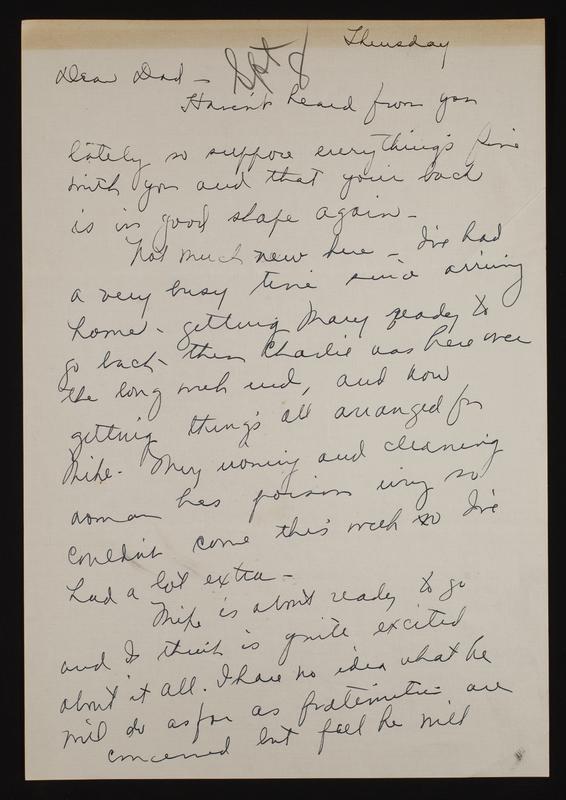 Thursday
Sept 8
Dear Dad -
Haven't heard from you
lately so suppose everything's fine
with you and that your back
is in good shape again -
Not much new here - I've had
a very busy time since arriving
home - getting Mary ready to
go back - then Charlie was here over
the long week end, and now
getting things all arranged for
Mike - My ironing and cleaning
woman has poison ivy so
couldn't come this week so I've
had a lot extra -
Mike is about ready to go
and I think is quite excited
about it all. I have no idea what he
will do as far as fraternities are
concerned but feel he will